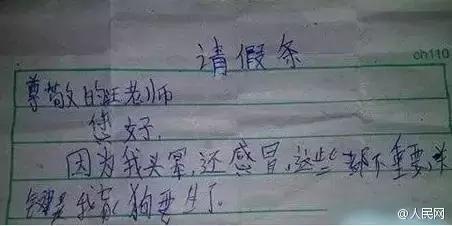 请假条
ch110
尊敬的汪老师
您好,
因为我头晕,还感冒,这些都不重要,关
键是我家狗要生了.
@人民网